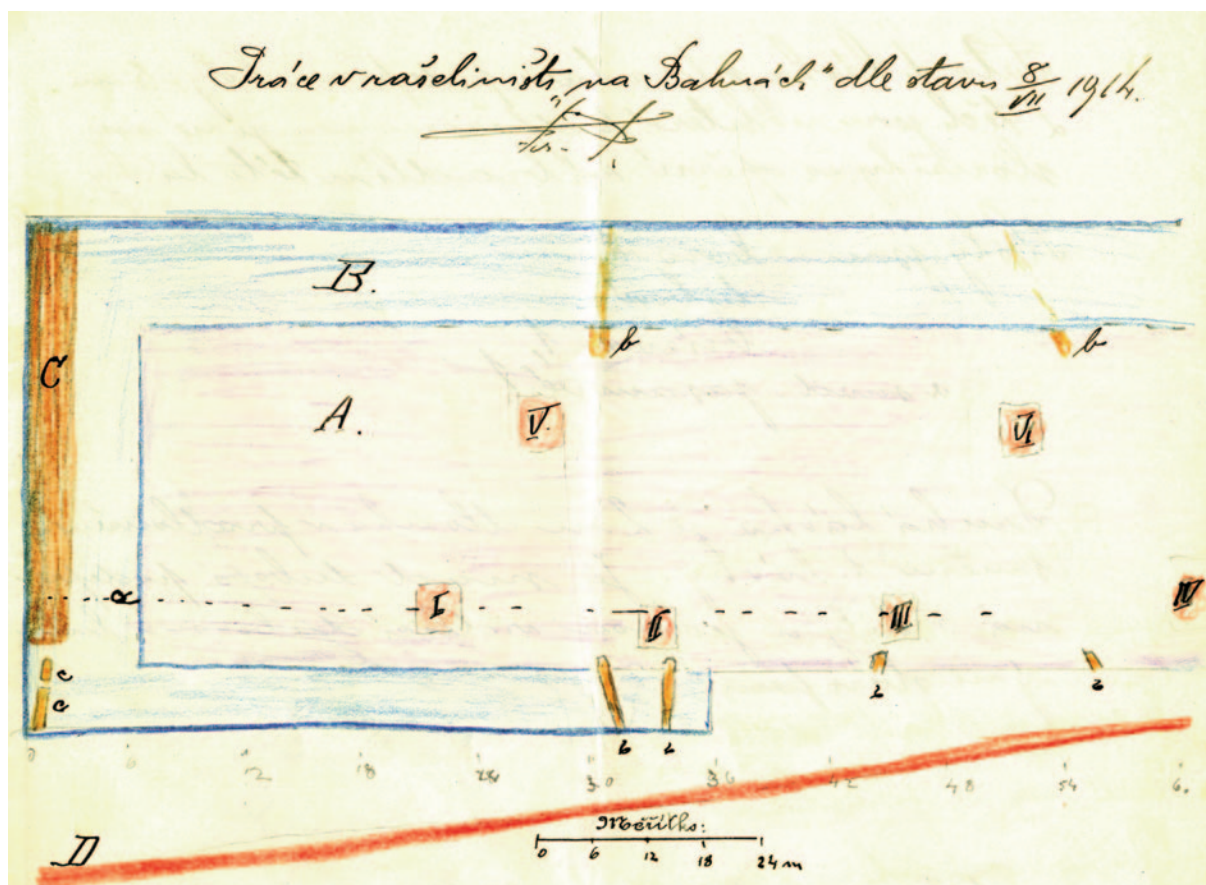 Práce v rašeliništi „na Bahnách" dle stavu 8/VII 1914.
B.
b b
C
A. V. VI
α I II III IV
c
c b b
b b
0 6 12 18 24 30 36 42 48 54 6.
D
Měřítko:
0 6 12 18 24 m